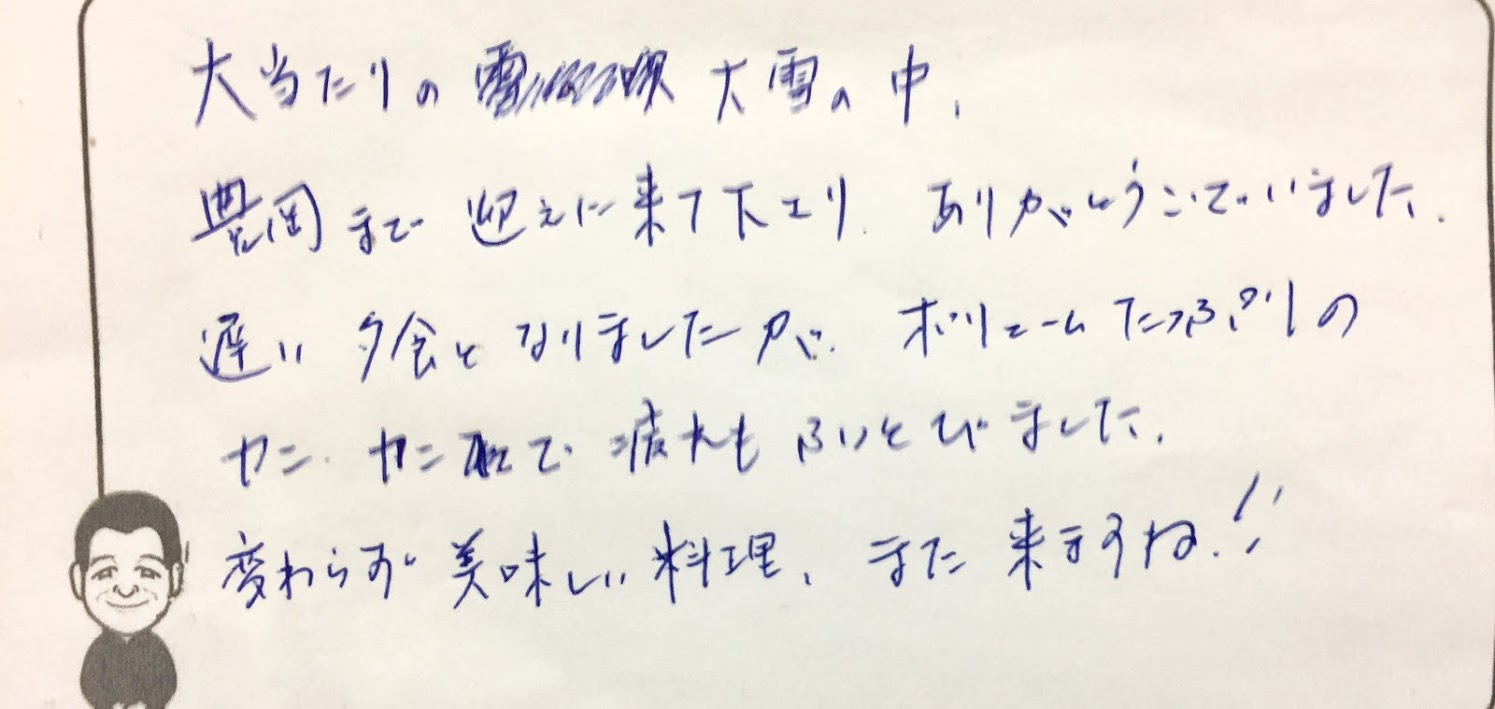 大当たりの 大雪の中、
豊岡まで迎えに来て下さり、ありがとうございました。
遅い夕食となりましたが、ボリュームたっぷりの
カニ、カニで疲れもふっとびました。
変わらず美味しい料理、また来ますね!!